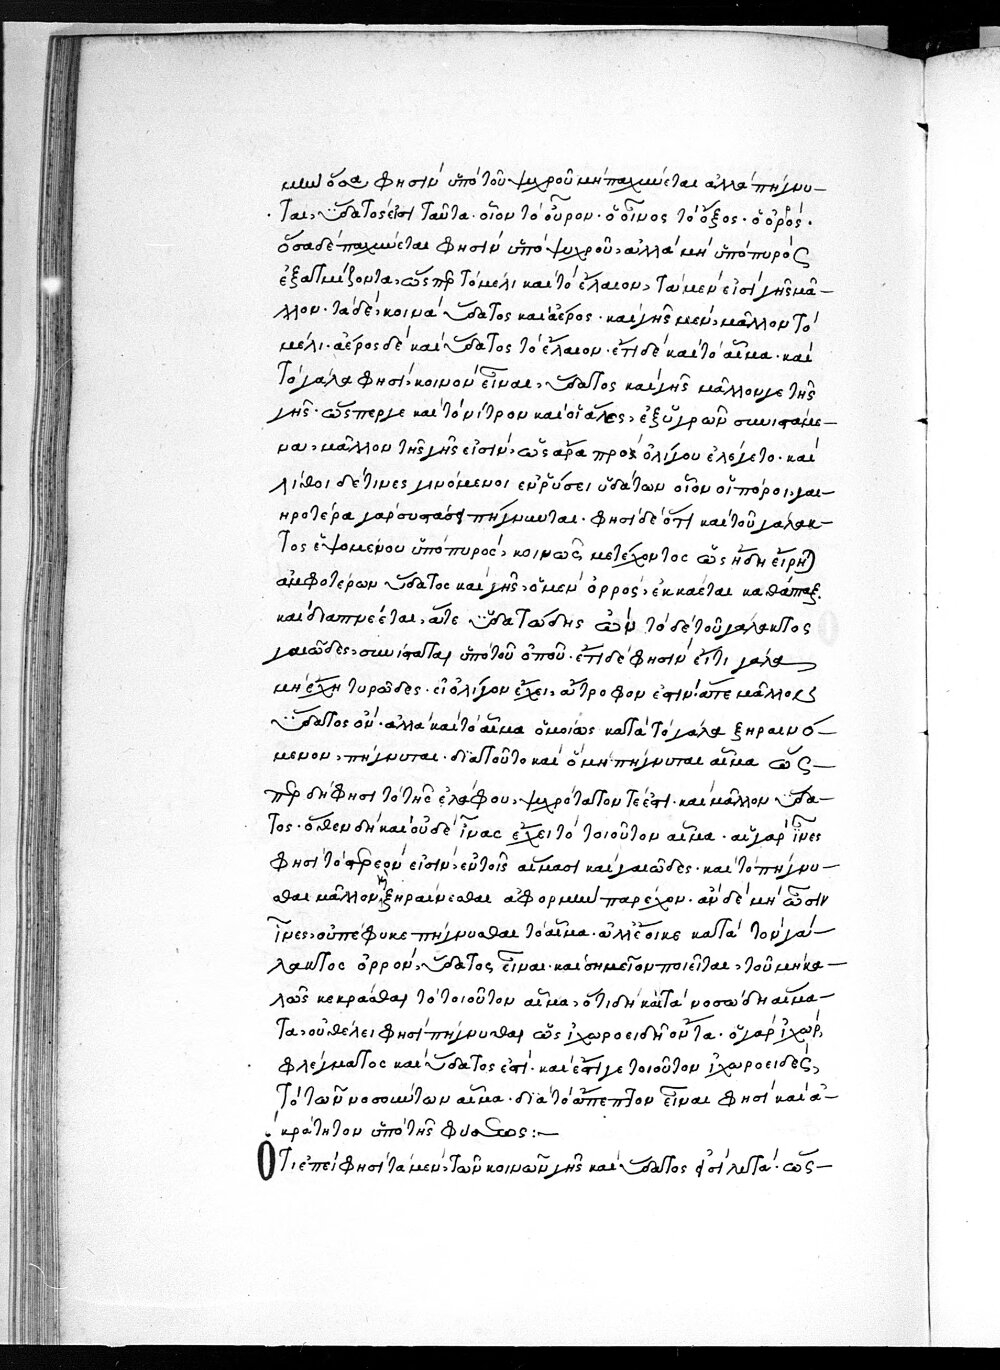 μὴν ὅσα φησὶν ὑπὸ τοῦ ψυχροῦ μὴ παχύνεται ἀλλὰ πήγνυ-
ται, ὕδατος ἐστὶ ταῦτα· οἷον τὸ οὖρον· ὁ οἶνος τὸ ὄξος· ὁ ὀρός·
ὅσα δὲ παχύνεται φησὶν ὑπὸ ψυχροῦ, ἀλλὰ μὴ ὑπὸ πυρὸς
ἐξατμίζοντα, ὥσπερ τὸ μέλι καὶ τὸ ἔλαιον, τὰ μὲν εἰσὶ γῆς μᾶ-
λλον· τὰ δὲ, κοινὰ ὕδατος καὶ ἀέρος· καὶ γῆς μὲν, μᾶλλον τὸ
μέλι· ἀέρος δὲ καὶ ὕδατος τὸ ἔλαιον· ἔτι δὲ καὶ τὸ αἷμα· καὶ
τὸ γάλα φησὶ, κοινὸν εἶναι, ὕδατος καὶ γῆς μᾶλλον γε τῆς
γῆς· ὥσπερ γε καὶ τὸ νίτρον καὶ οἱ ἅλες, ἐξ ὑγρῶν συνιστάμε-
να, μᾶλλον τῆς γῆς εἰσὶν, ὡς ἄρα πρὸ ὀλίγου ἐλέγετο· καὶ
λίθοι δέ τινες γινόμενοι ἐν ῥύσει ὑδάτων οἷον οἱ πόροι, γαι-
ηροτέρα γὰρ συστάσει πήγνυνται· φησὶ δὲ ὅτι καὶ τοῦ γάλακ-
τος ἑψομένου ὑπὸ πυρὸς, κοινῶς μετέχοντος ὡς ἤδη εἴρη)
ἀμφοτέρων ὕδατος καὶ γῆς, ὁ μὲν ὀρρὸς, ἐκκαίεται καθάπαξ
καὶ διαπνέεται, ἅτε ὑδατώδης ὤν τὸ δὲ τοῦ γάλακτος
γαιῶδες, συνίσταται ὑπὸ τοῦ ὀποῦ· ἔτι δὲ φησὶν εἴ τι γάλα
μὴ ἔχῃ τυρῶδες· εἰ ὀλίγον ἔχει, ἄτροφον ἐστὶν· ἅτε μᾶλλον
ὕδατος ὂν· ἀλλὰ καὶ τὸ αἷμα ὁμοίως κατὰ τὸ γάλα ξηραινό-
μενον, πήγνυται· διατοῦτο καὶ ὃ μὴ πήγνυται αἷμα ὥς-
περ δή φησι τὸ τῆς ἐλάφου, ψυχρότατόν τέ ἐστι· καὶ μᾶλλον ὕδα-
τος· ὅθεν δὴ καὶ οὐδὲ ἶνας ἔχει τὸ τοιοῦτον αἷμα· αἱ γὰρ ἶνες
φησὶ τὸ στερεόν εἰσιν, ἐν τοῖς αἵμασι καὶ γαιῶδες· καὶ τὸ πήγνυ-
σθαι μᾶλλον καὶ ξηραίνεσθαι ἀφορμὴν παρέχον· ἂν δὲ μὴ ὦσιν
ἶνες, οὐ πέφυκε πήγνυσθαι τὸ αἷμα· ἀλλ' ἔοικε κατὰ τὸν γά-
λακτος ὀρρὸν, ὕδατος εἶναι· καὶ σημεῖον ποιεῖται, τοῦ μὴ κα-
λῶς κεκρᾶσθαι τὸ τοιοῦτον αἷμα, ὅτι δὴ κατὰ νοσώδη αἵμα-
τα, οὐ θέλει φησὶ πήγνυσθαι ὡς ἰχωροειδῆ ὄντα· ὁ γὰρ ἰχὼρ,
φλέγματος καὶ ὕδατος ἐστὶ· καὶ ἔστι γε τοιοῦτον ἰχωροειδὲς,
τὸ τῶν νοσούντων αἷμα· διὰ τὸ ἄπεπτον εἶναι φησὶ καὶ ἀ-
κράτητον ὑπὸ τῆς φύσεως:~
Ὅτι ἐπεί φησι τὰ μὲν, τῶν κοινῶν γῆς καὶ ὕδατος ἐστὶ λυτὰ· ὡς-